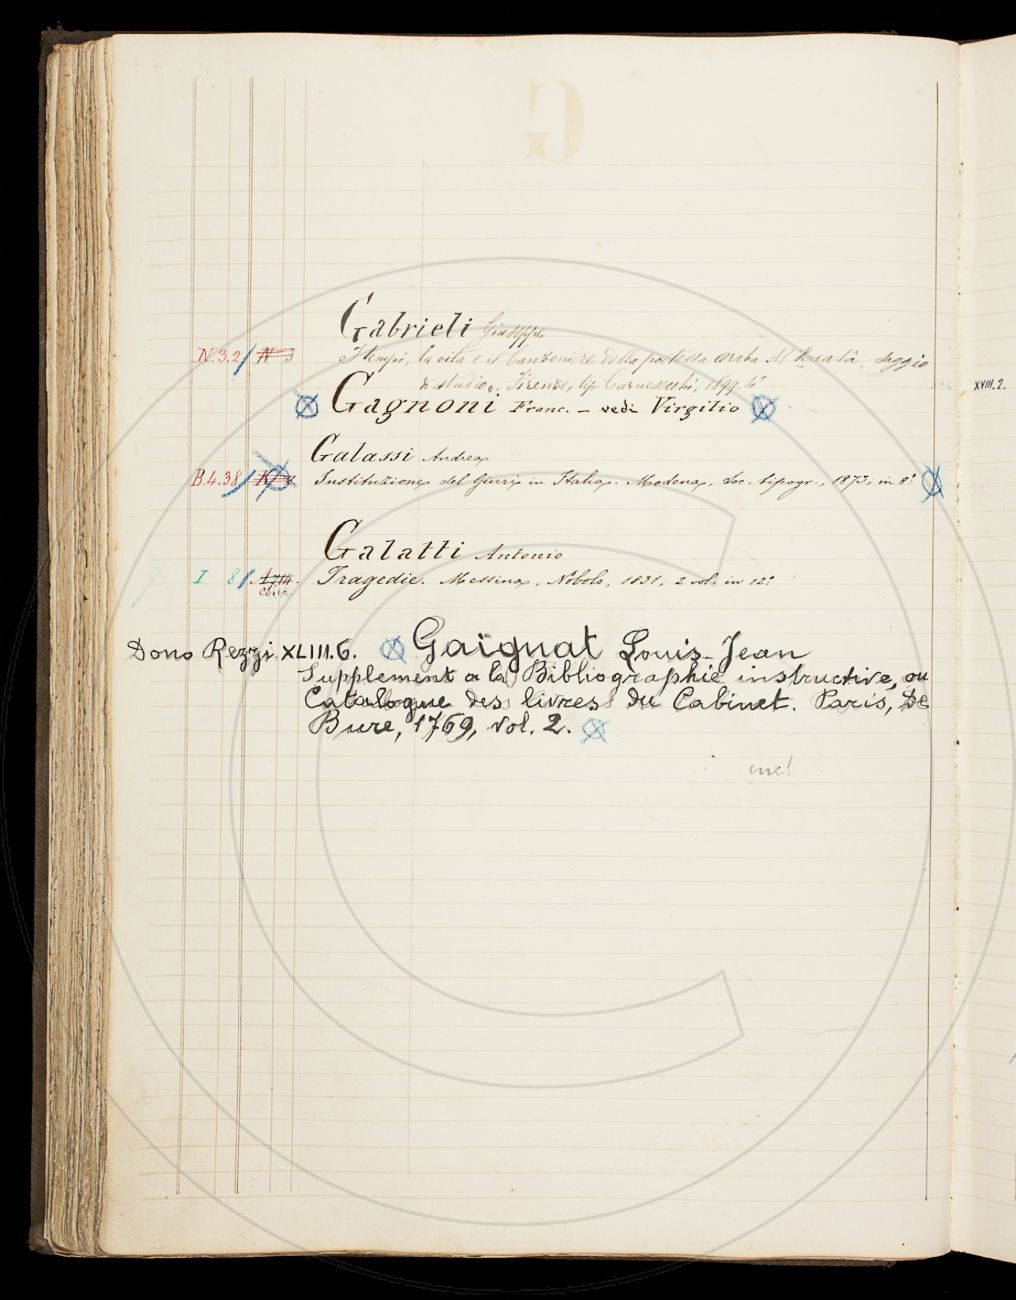 Gabrieli Giuseppe
N.3.2 / N 3 I tempi, la vita e il Canzoniere della poetessa araba Al Ḫansā', saggio
di studio. Firenze, tip. Carnesecchi, 1899. 4°
XVIII.2.
Gagnoni Franc. - vedi Virgilio
Galassi Andrea
B.4.38 / Instituzione del Giurì in Italia. Modena, Soc. tipogr., 1873, in 8°
Galatti Antonio
I 8 / Tragedie. Messina, Nobolo, 1831, 2 vol. in 12°
Dono Rezzi XLIII.6. Gaignat Louis-Jean
Supplement a la Bibliographie instructive, ou
Catalogue des livres du Cabinet. Paris, De
Bure, 1769, vol. 2.